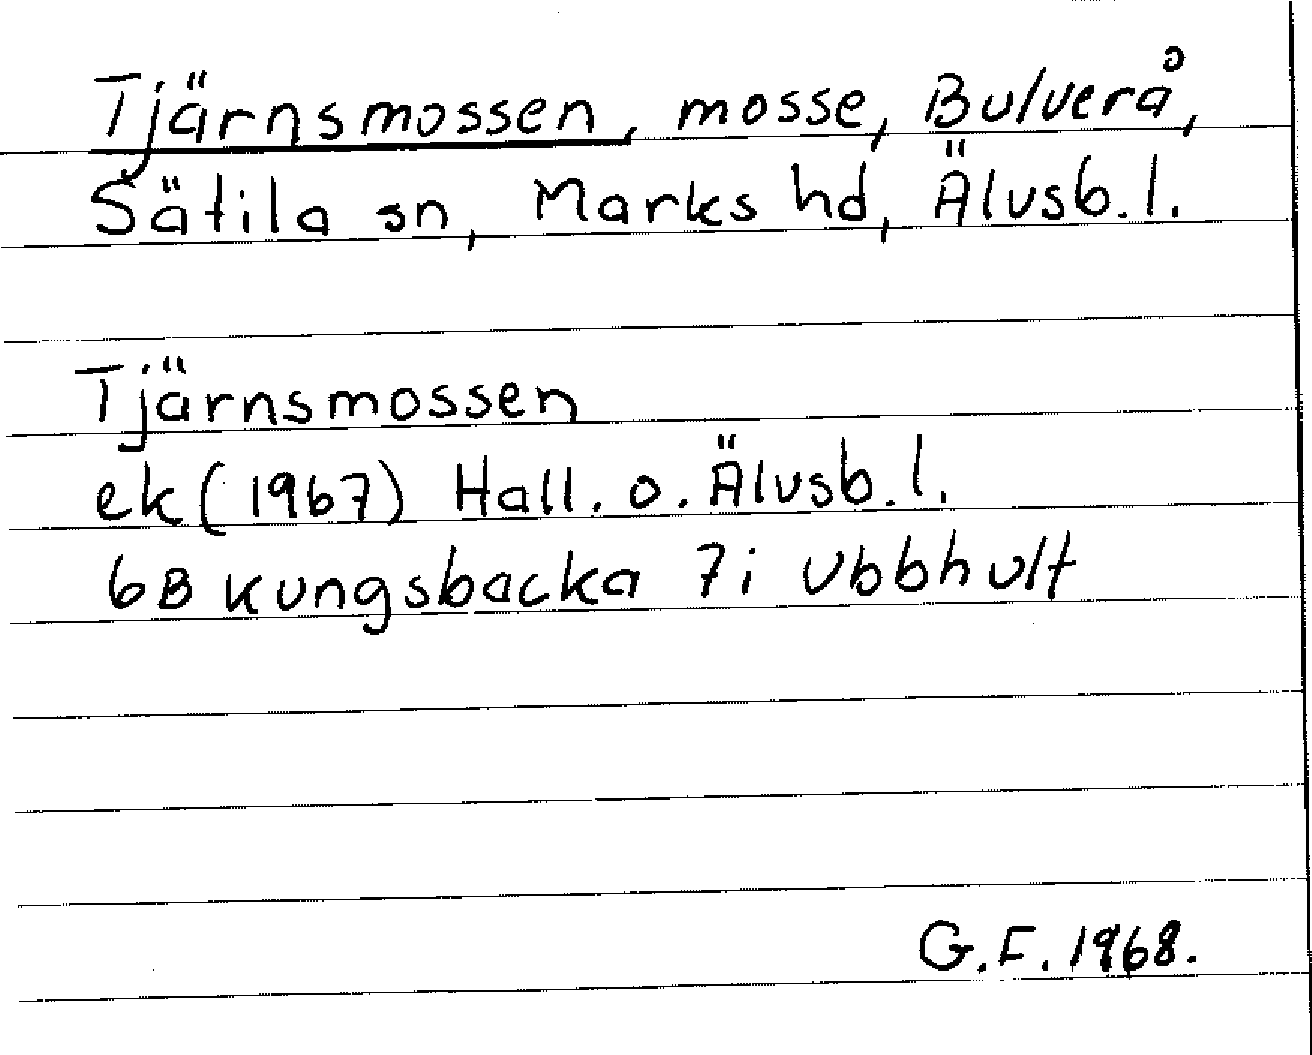 Tjärnsmossen, mosse, Bulverå,
Sätila sn, Marks hd, Älvsb. l.
Tjärnsmossen
ek (1967) Hall. o. Älvsb. l.
6B Kungsbacka 7i Ubbhult
G.F. 1968.